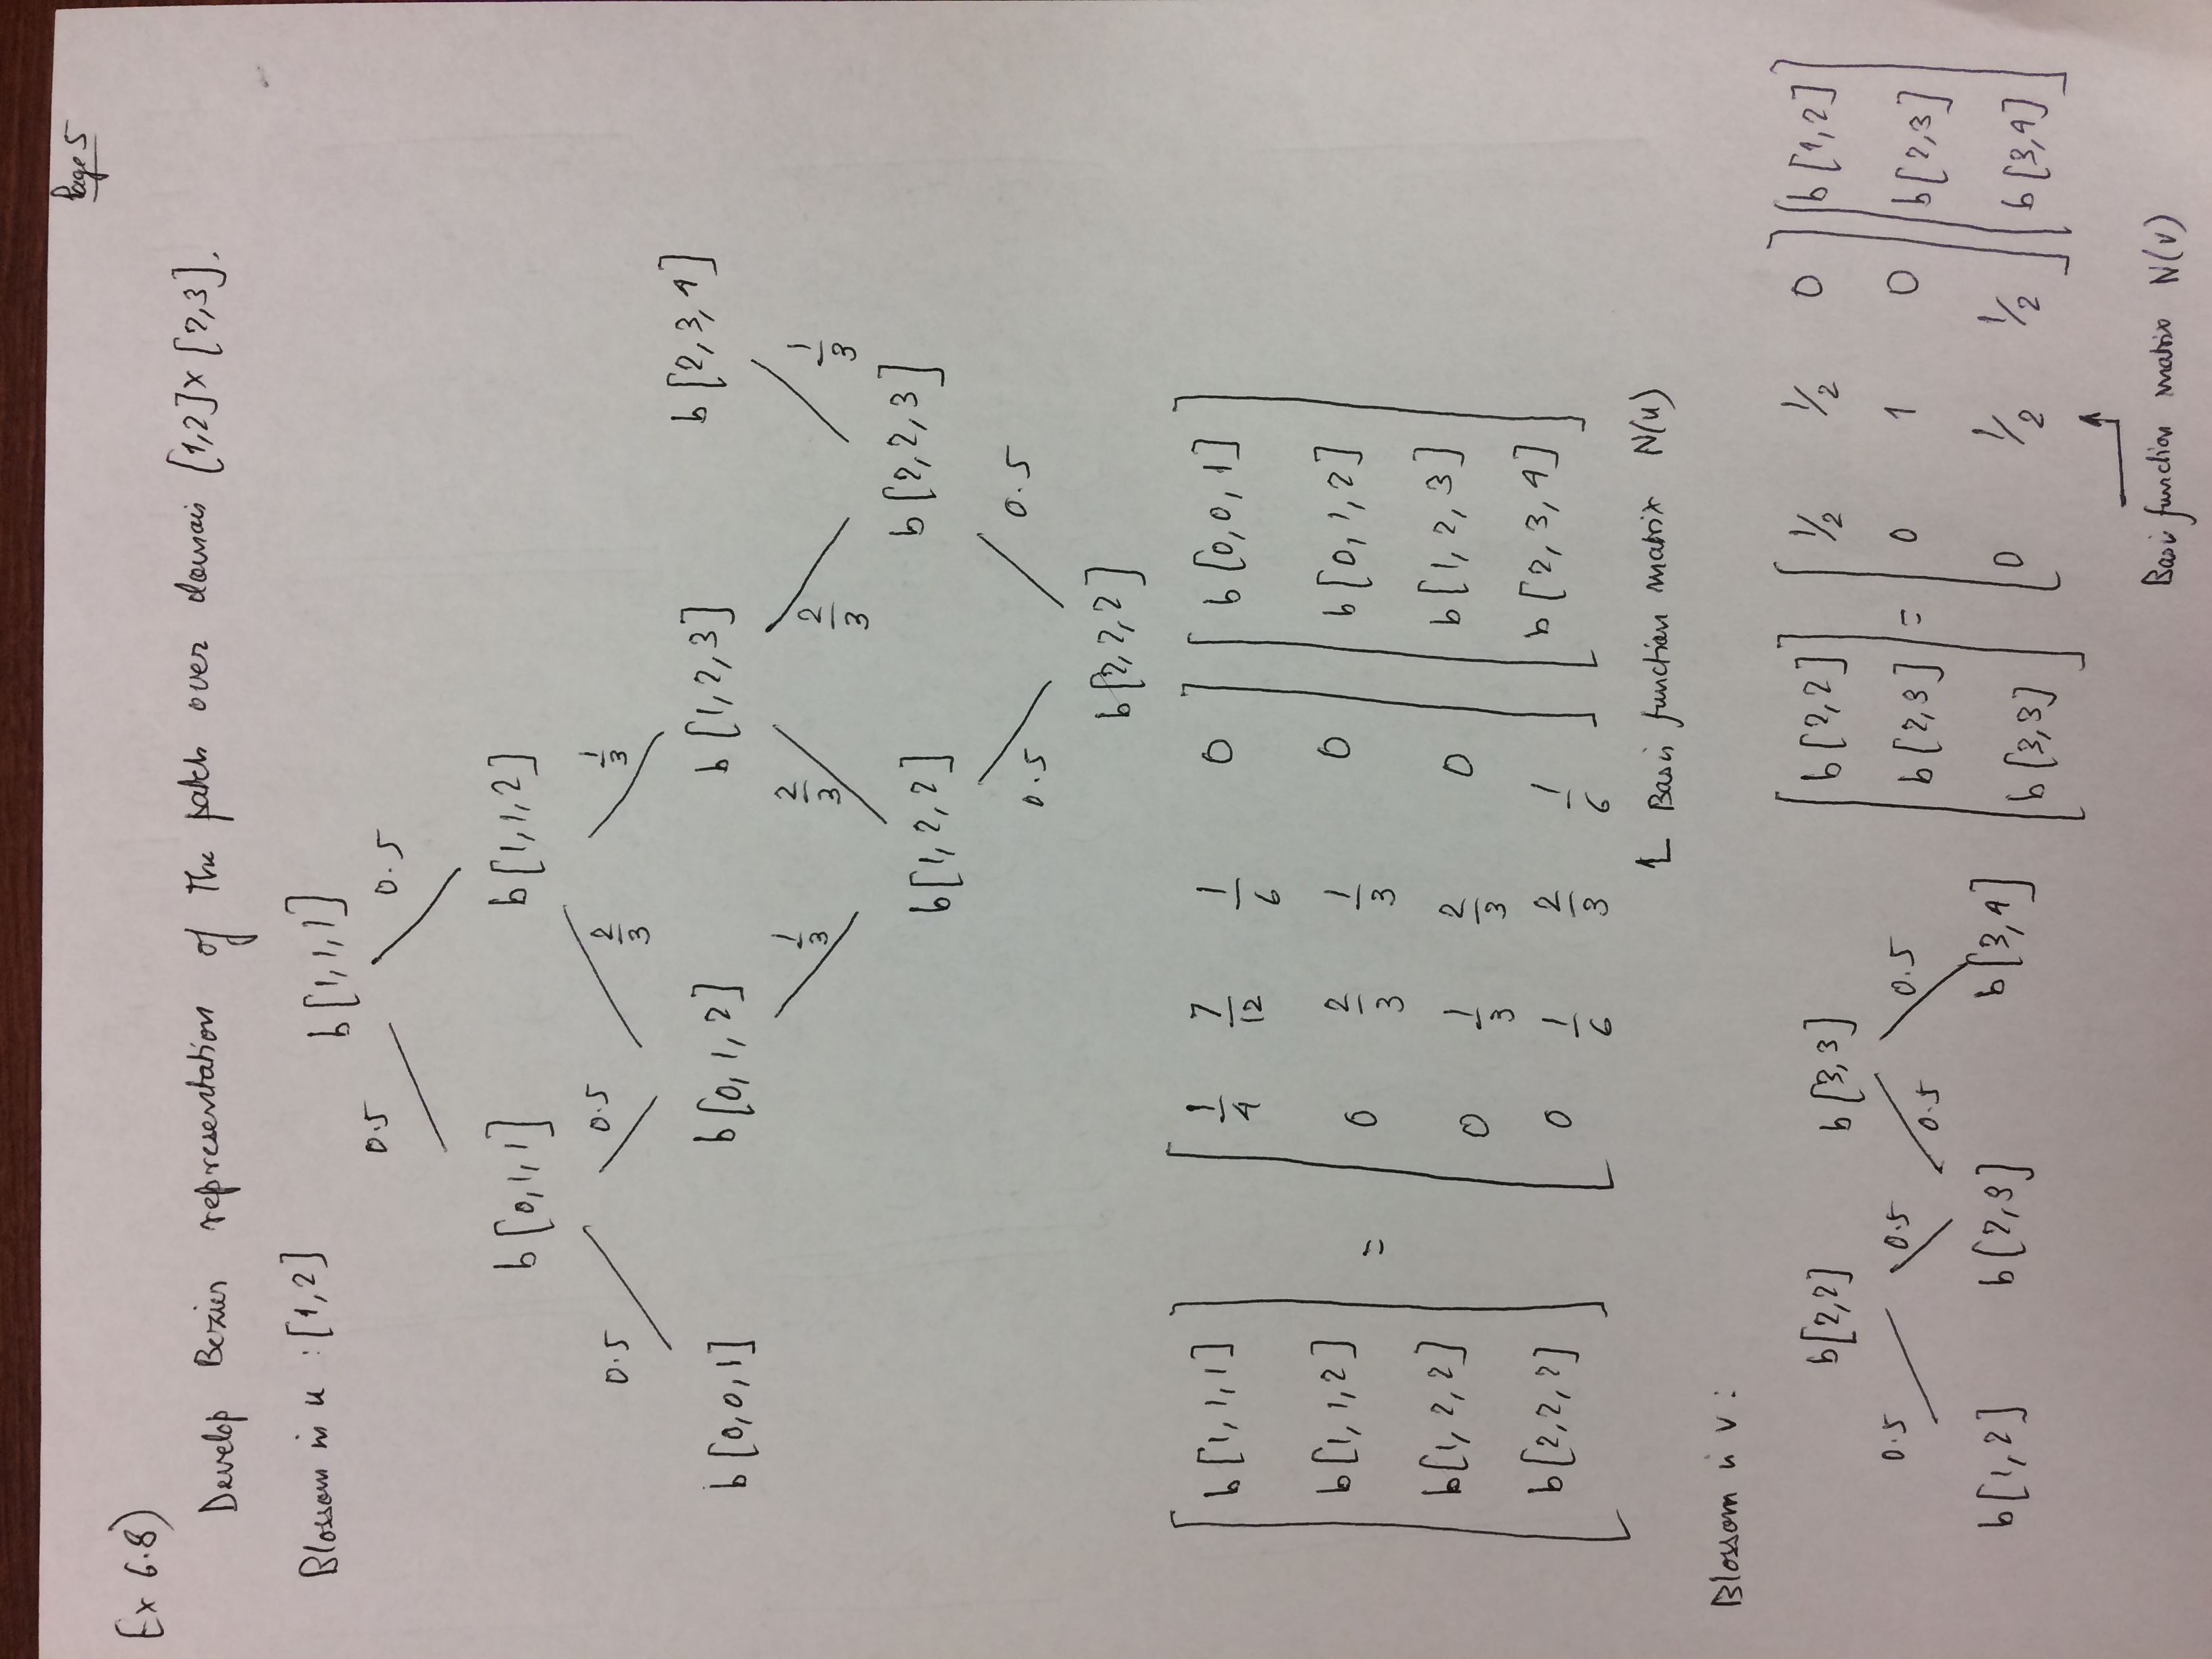 Page 5
Ex 6.8)
Develop Bezier representation of the patch over domain [1,2]x [2,3].
Blossom in u : [1,2]
b[1,1,1]
0.5 0.5
b[0,1,1] b[1,1,2]
0.5 0.5 2/3 1/3
b[0,0,1] b[0,1,2] b[1,2,3] b[2,3,4]
1/3 2/3 2/3 1/3
b[1,2,2] b[2,2,3]
0.5 0.5
b[2,2,2]
b[1,1,1] 1/4 7/12 1/6 0 b[0,0,1]
b[1,1,2] = 0 2/3 1/3 0 b[0,1,2]
b[1,2,2] 0 1/3 2/3 0 b[1,2,3]
b[2,2,2] 0 1/6 2/3 1/6 b[2,3,4]
Basis function matrix N(u)
Blossom in v :
b[2,2] b[3,3]
0.5 0.5 0.5 0.5
b[1,2] b[2,3] b[3,4]
b[2,2] 1/2 1/2 0 b[1,2]
b[2,3] = 0 1 0 b[2,3]
b[3,3] 0 1/2 1/2 b[3,4]
Basis function matrix N(v)